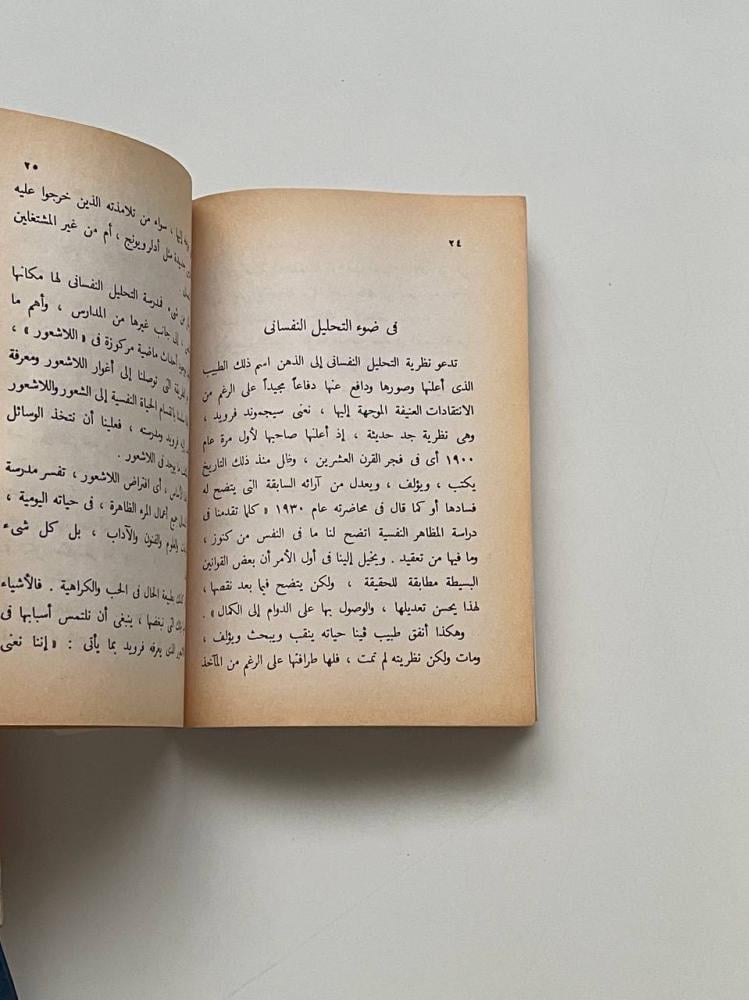 ٢٤
فى ضوء التحليل النفسانى
تدعو نظرية التحليل النفسانى إلى الذهن اسم ذلك الطبيب
الذى أعلنها وصورها ودافع عنها دفاعاً مجيداً على الرغم من
الانتقادات العنيفة الموجهة إليها ، نعنى سيجموند فرويد ،
وهى نظرية جد حديثة ، إذ أعلنها صاحبها لأول مرة عام
١٩٠٠ أى فى فجر القرن العشرين ، وظل منذ ذلك التاريخ
يكتب ، ويؤلف ، ويعدل من آرائه السابقة التى يتضح له
فسادها أو كما قال فى محاضرته عام ١٩٣٠ « كلما تقدمنا فى
دراسة المظاهر النفسية اتضح لنا ما فى النفس من كنوز ,
وما فيها من تعقيد . ويخيل إلينا فى أول الأمر أن بعض القوانين
البسيطة مطابقة للحقيقة ، ولكن يتضح فيما بعد نقصها ,
لهذا يحسن تعديلها ، والوصول بها على الدوام إلى الكمال» .
وهكذا أنفق طبيب ڤينا حياته ينقب ويبحث ويؤلف ،
ومات ولكن نظريته لم تمت ، فلها طرافتها على الرغم من المآخذ
٢٥
سواء من تلامذته الذين خرجوا عليه
مثل أدلر ويونج ، أم من غير المشتغلين
فدرسة التحليل النفسانى لها مكانها
إلى جانب غيرها من المدارس ، وأهم ما
أحداث ماضية مركوزة فى « اللاشعور » ،
التى توصلنا إلى أغوار اللاشعور ومعرفة
بانقسام الحياة النفسية إلى الشعور واللاشعور
فرويد ومدرسته ، فعلينا أن نتخذ الوسائل
ما يوجد فى اللاشعور .
، أى افتراض اللاشعور ، تفسر مدرسة
جميع أعمال المرء الظاهرة ، فى حياته اليومية ،
والعلوم والفنون والآداب ، بل كل شىء
طبيعة الحال فى الحب والكراهية . فالأشياء
التى نبغضها ، ينبغى أن نلتمس أسبابها فى
الذى يعرفه فرويد بما يأتى : « إننا نعنى